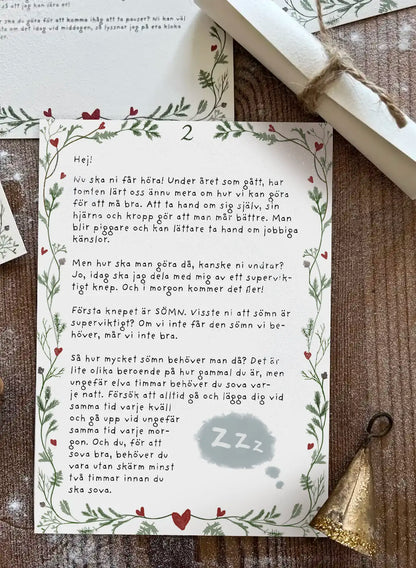 så att jag kan lära er!
du göra för att komma ihåg att ta pauser? Ni kan väl
ta om det idag vid middagen, så lyssnar jag på era kloka
2
Hej!
Nu ska ni får höra! Under året som gått, har
tomten lärt oss ännu mera om hur vi kan göra
för att må bra. Att ta hand om sig själv, sin
hjärna och kropp gör att man mår bättre. Man
blir piggare och kan lättare ta hand om jobbiga
känslor.
Men hur ska man göra då, kanske ni undrar?
Jo, idag ska jag dela med mig av ett supervik-
tigt knep. Och i morgon kommer det fler!
Första knepet är SÖMN. Visste ni att sömn är
superviktigt? Om vi inte får den sömn vi be-
höver, mår vi inte bra.
Så hur mycket sömn behöver man då? Det är
lite olika beroende på hur gammal du är, men
ungefär elva timmar behöver du sova var-
je natt. Försök att alltid gå och lägga dig vid
samma tid varje kväll
och gå upp vid ungefär
samma tid varje mor-
gon. Och du, för att
sova bra, behöver du
vara utan skärm minst
två timmar innan du
ska sova.
ZZZ
2